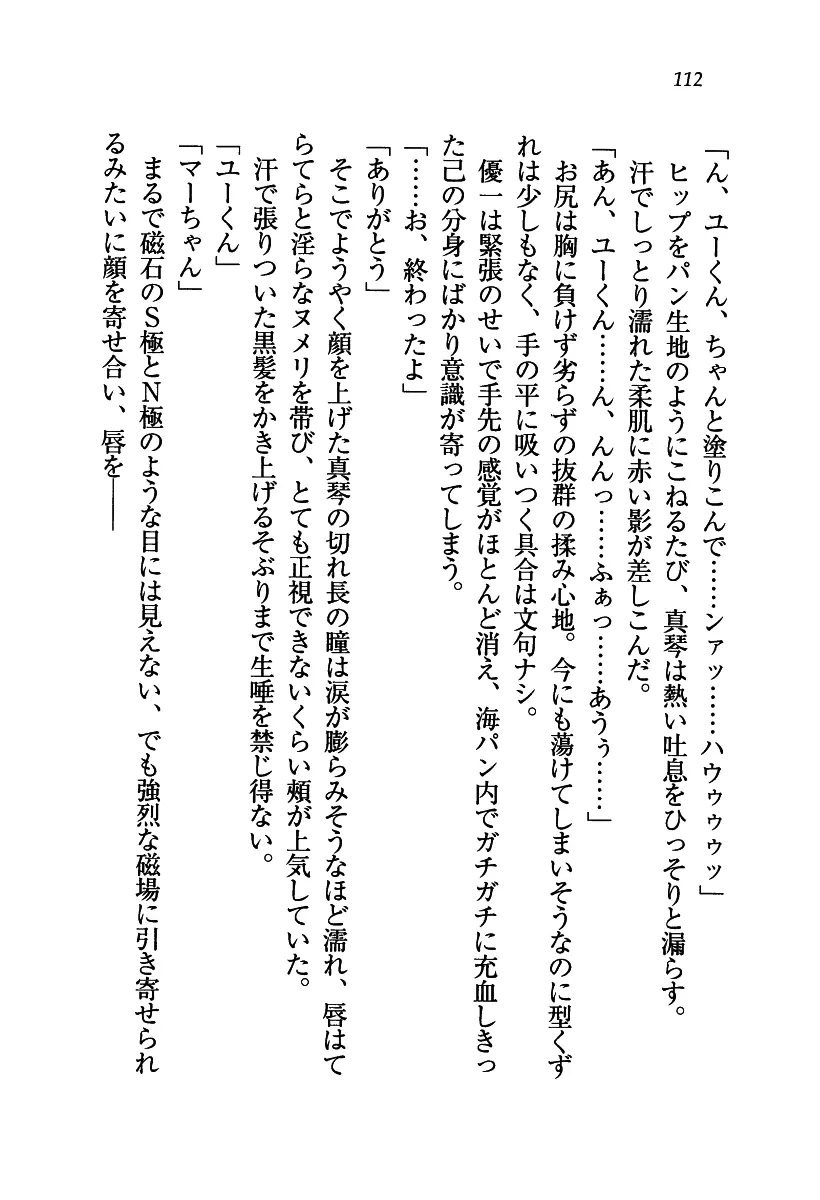 112
「ん、ユーくん、ちゃんと塗りこんで……ンァッ……ハウゥゥゥッ」
ヒップをパン生地のようにこねるたび、真琴は熱い吐息をひっそりと漏らす。
汗でしっとり濡れた柔肌に赤い影が差しこんだ。
「あん、ユーくん……ん、んんっ……ふぁっ……あうぅ……」
お尻は胸に負けず劣らずの抜群の揉み心地。今にも蕩けてしまいそうなのに型くず
れは少しもなく、手の平に吸いつく具合は文句ナシ。
優一は緊張のせいで手先の感覚がほとんど消え、海パン内でガチガチに充血しきっ
た己の分身にばかり意識が寄ってしまう。
「……お、終わったよ」
「ありがとう」
そこでようやく顔を上げた真琴の切れ長の瞳は涙が膨らみそうなほど濡れ、唇はて
らてらと淫らなヌメリを帯び、とても正視できないくらい頬が上気していた。
汗で張りついた黒髪をかき上げるそぶりまで生唾を禁じ得ない。
「ユーくん」
「マーちゃん」
まるで磁石のS極とN極のような目には見えない、でも強烈な磁場に引き寄せられ
るみたいに顔を寄せ合い、唇を――